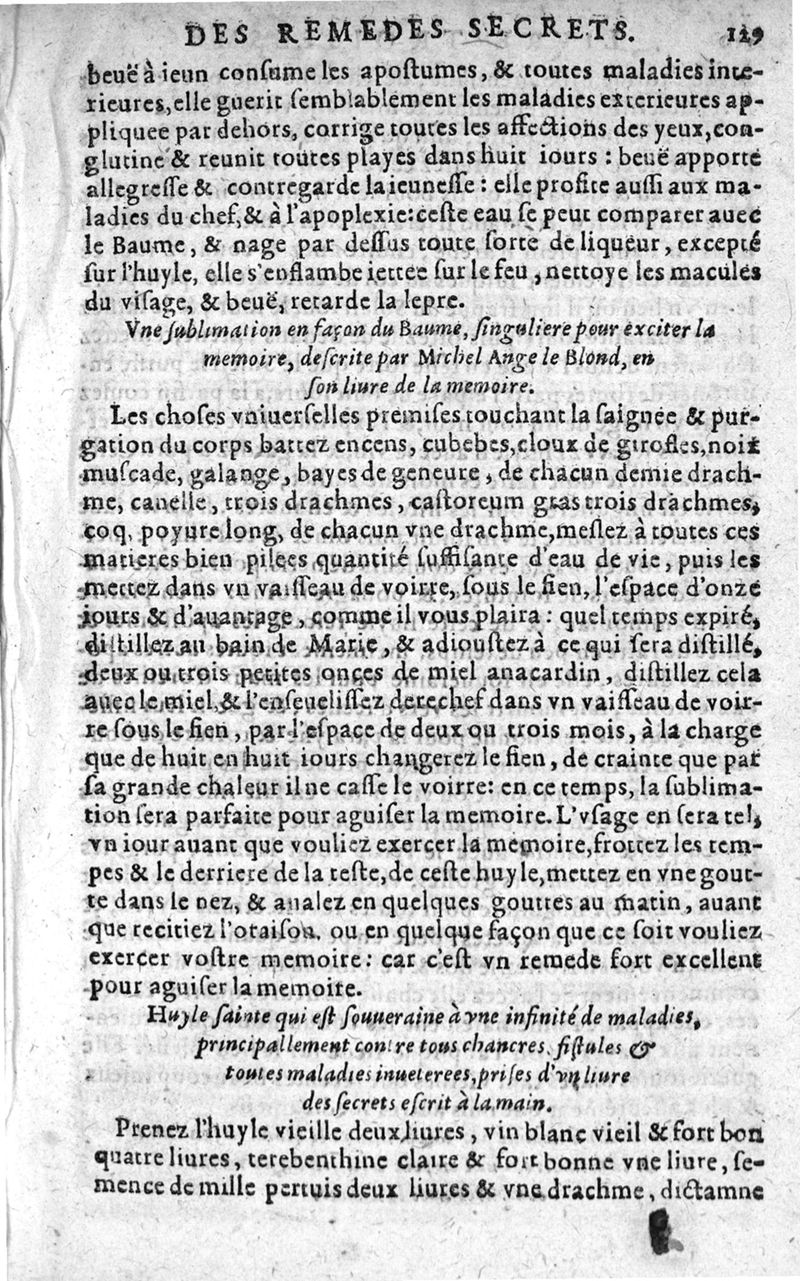 DES REMEDES SECRETS. 129
beuë à ieun conſume les apoſtumes, & toutes maladies inte-
rieures, elle guerit ſemblablement les maladies exterieures ap-
pliquee par dehors, corrige toutes les affections des yeux, con-
glutine & reunit toutes playes dans huit iours : beuë apporte
allegreſſe & contregarde la ieuneſſe : elle profite auſſi aux ma-
ladies du chef, & à l'apoplexie: ceſte eau ſe peut comparer auec
le Baume, & nage par deſſus toute ſorte de liqueur, excepté
ſur l'huyle, elle s'enflambe iettee ſur le feu, nettoye les macules
du viſage, & beuë, retarde la lepre.
Vne ſublimation en façon du Baume, ſinguliere pour exciter la
memoire, deſcrite par Michel Ange le Blond, en
ſon liure de la memoire.
Les choſes vniuerſelles premiſes touchant la ſaignée & pur-
gation du corps battez encens, cubebes, cloux de girofles, noix
muſcade, galange, bayes de geneure, de chacun demie drach-
me, canelle, trois drachmes, caſtoreum gras trois drachmes,
coq, poyure long, de chacun vne drachme, meſlez à toutes ces
matieres bien pilees quantité ſuffiſante d'eau de vie, puis les
mettez dans vn vaiſſeau de voirre, ſous le fien, l'eſpace d'onze
iours & d'auantage, comme il vous plaira : quel temps expiré,
diſtillez au bain de Marie, & adiouſtez à ce qui ſera diſtillé,
deux ou trois petites onces de miel anacardin, diſtillez cela
auec le miel, & l'enſeueliſſez derechef dans vn vaiſſeau de voir-
re ſous le fien, par l'eſpace de deux ou trois mois, à la charge
que de huit en huit iours changerez le fien, de crainte que par
ſa grande chaleur il ne caſſe le voirre: en ce temps, la ſublima-
tion ſera parfaite pour aguiſer la memoire. L'vſage en ſera tel,
vn iour auant que vouliez exercer la memoire, frottez les tem-
pes & le derriere de la teſte, de ceſte huyle, mettez en vne gout-
te dans le nez, & aualez en quelques gouttes au matin, auant
que recitiez l'oraiſon, ou en quelque façon que ce ſoit vouliez
exercer voſtre memoire: car c'eſt vn remede fort excellent
pour aguiſer la memoire.
Huyle ſainte qui eſt ſouueraine à vne infinité de maladies,
principallement contre tous chancres, fiſtules &
toutes maladies inueterees, priſes d'vn liure
des ſecrets eſcrit à la main.
Prenez l'huyle vieille deux liures, vin blanc vieil & fort bon
quatre liures, terebenthine claire & fort bonne vne liure, ſe-
mence de mille pertuis deux liures & vne drachme, dictamne